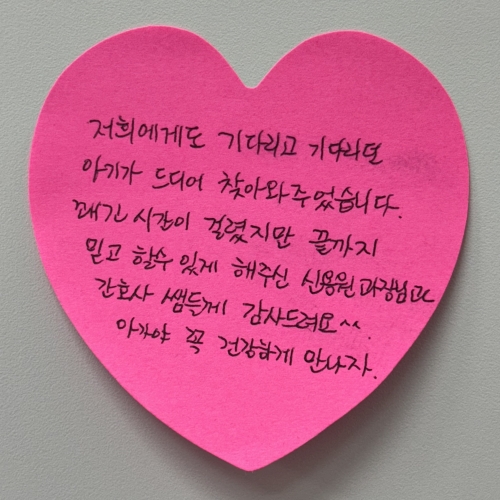 저희에게도 기다리고 기다리던
아기가 드디어 찾아와주었습니다.
꽤긴 시간이 걸렸지만 끝까지
믿고 할수 있게 해주신 신용원 과장님과
간호사 쌤들께 감사드려요^^.
아가야 꼭 건강하게 만나자.